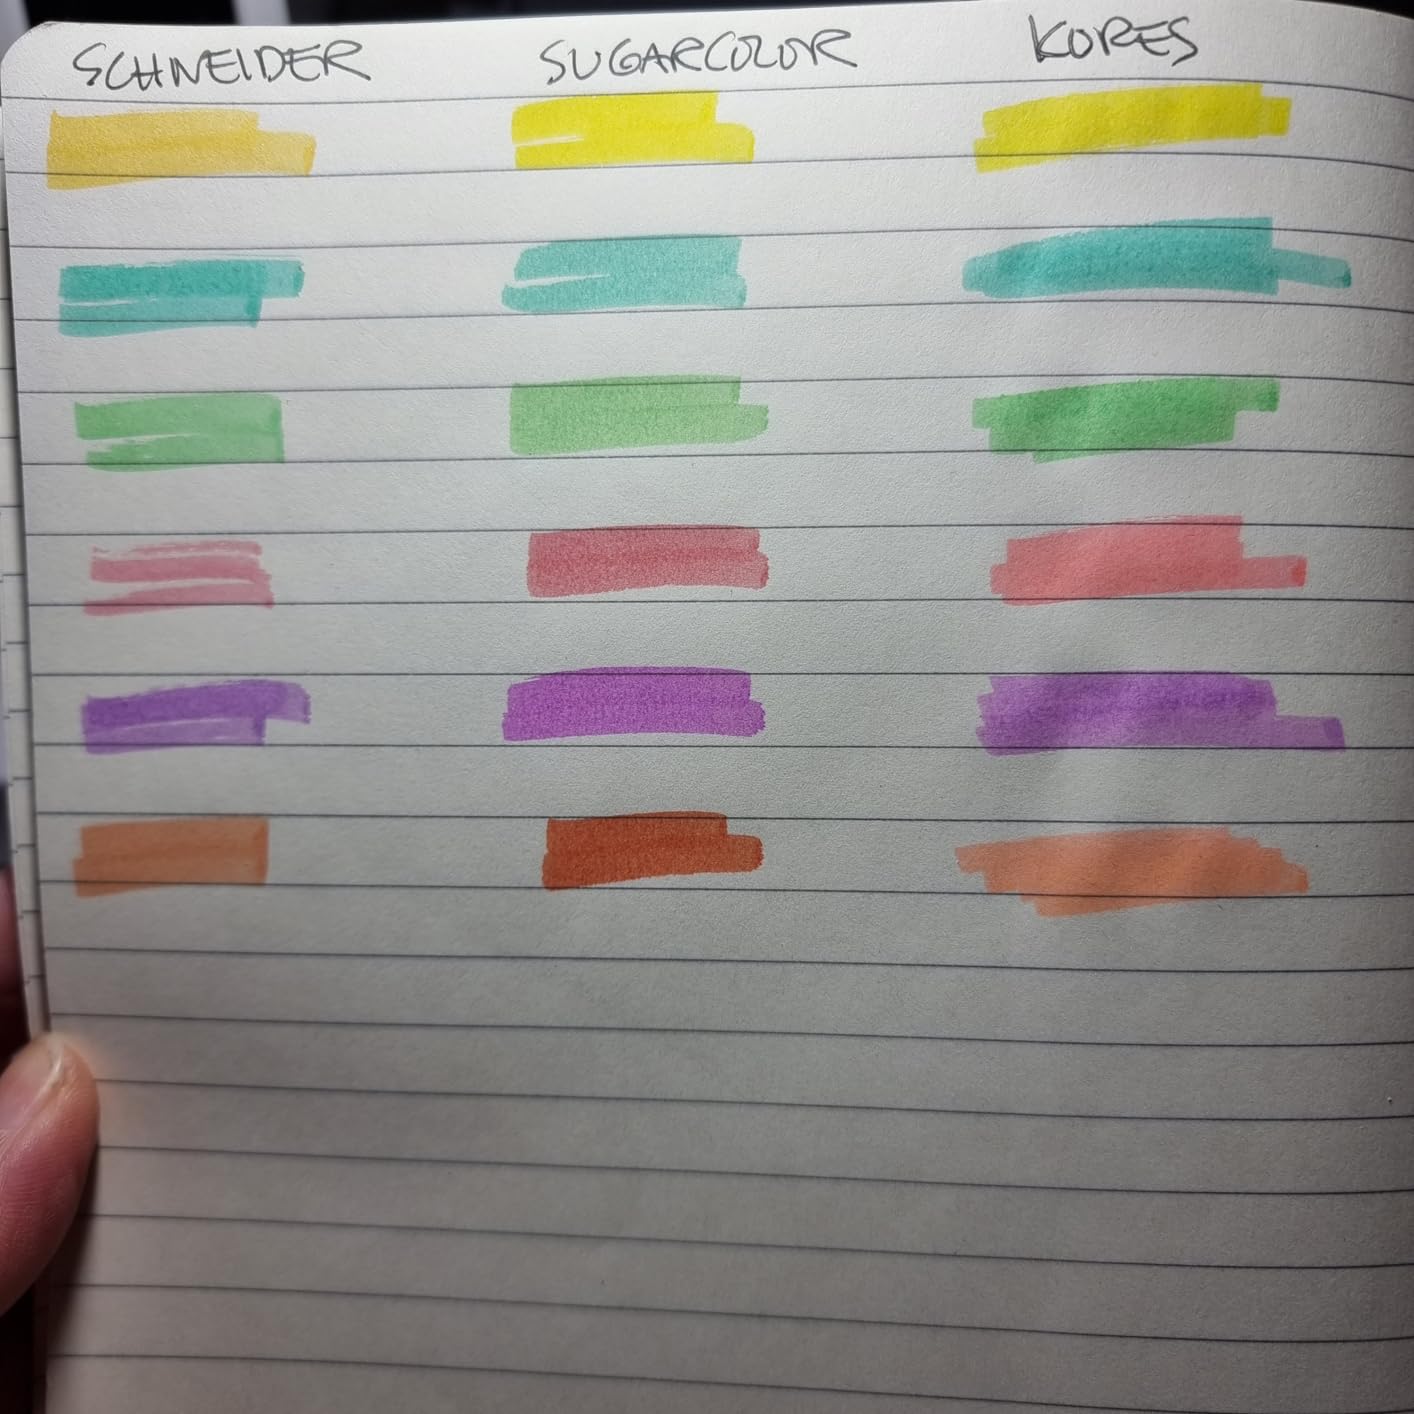 SCHNEIDER SUGARCOLOR KORES